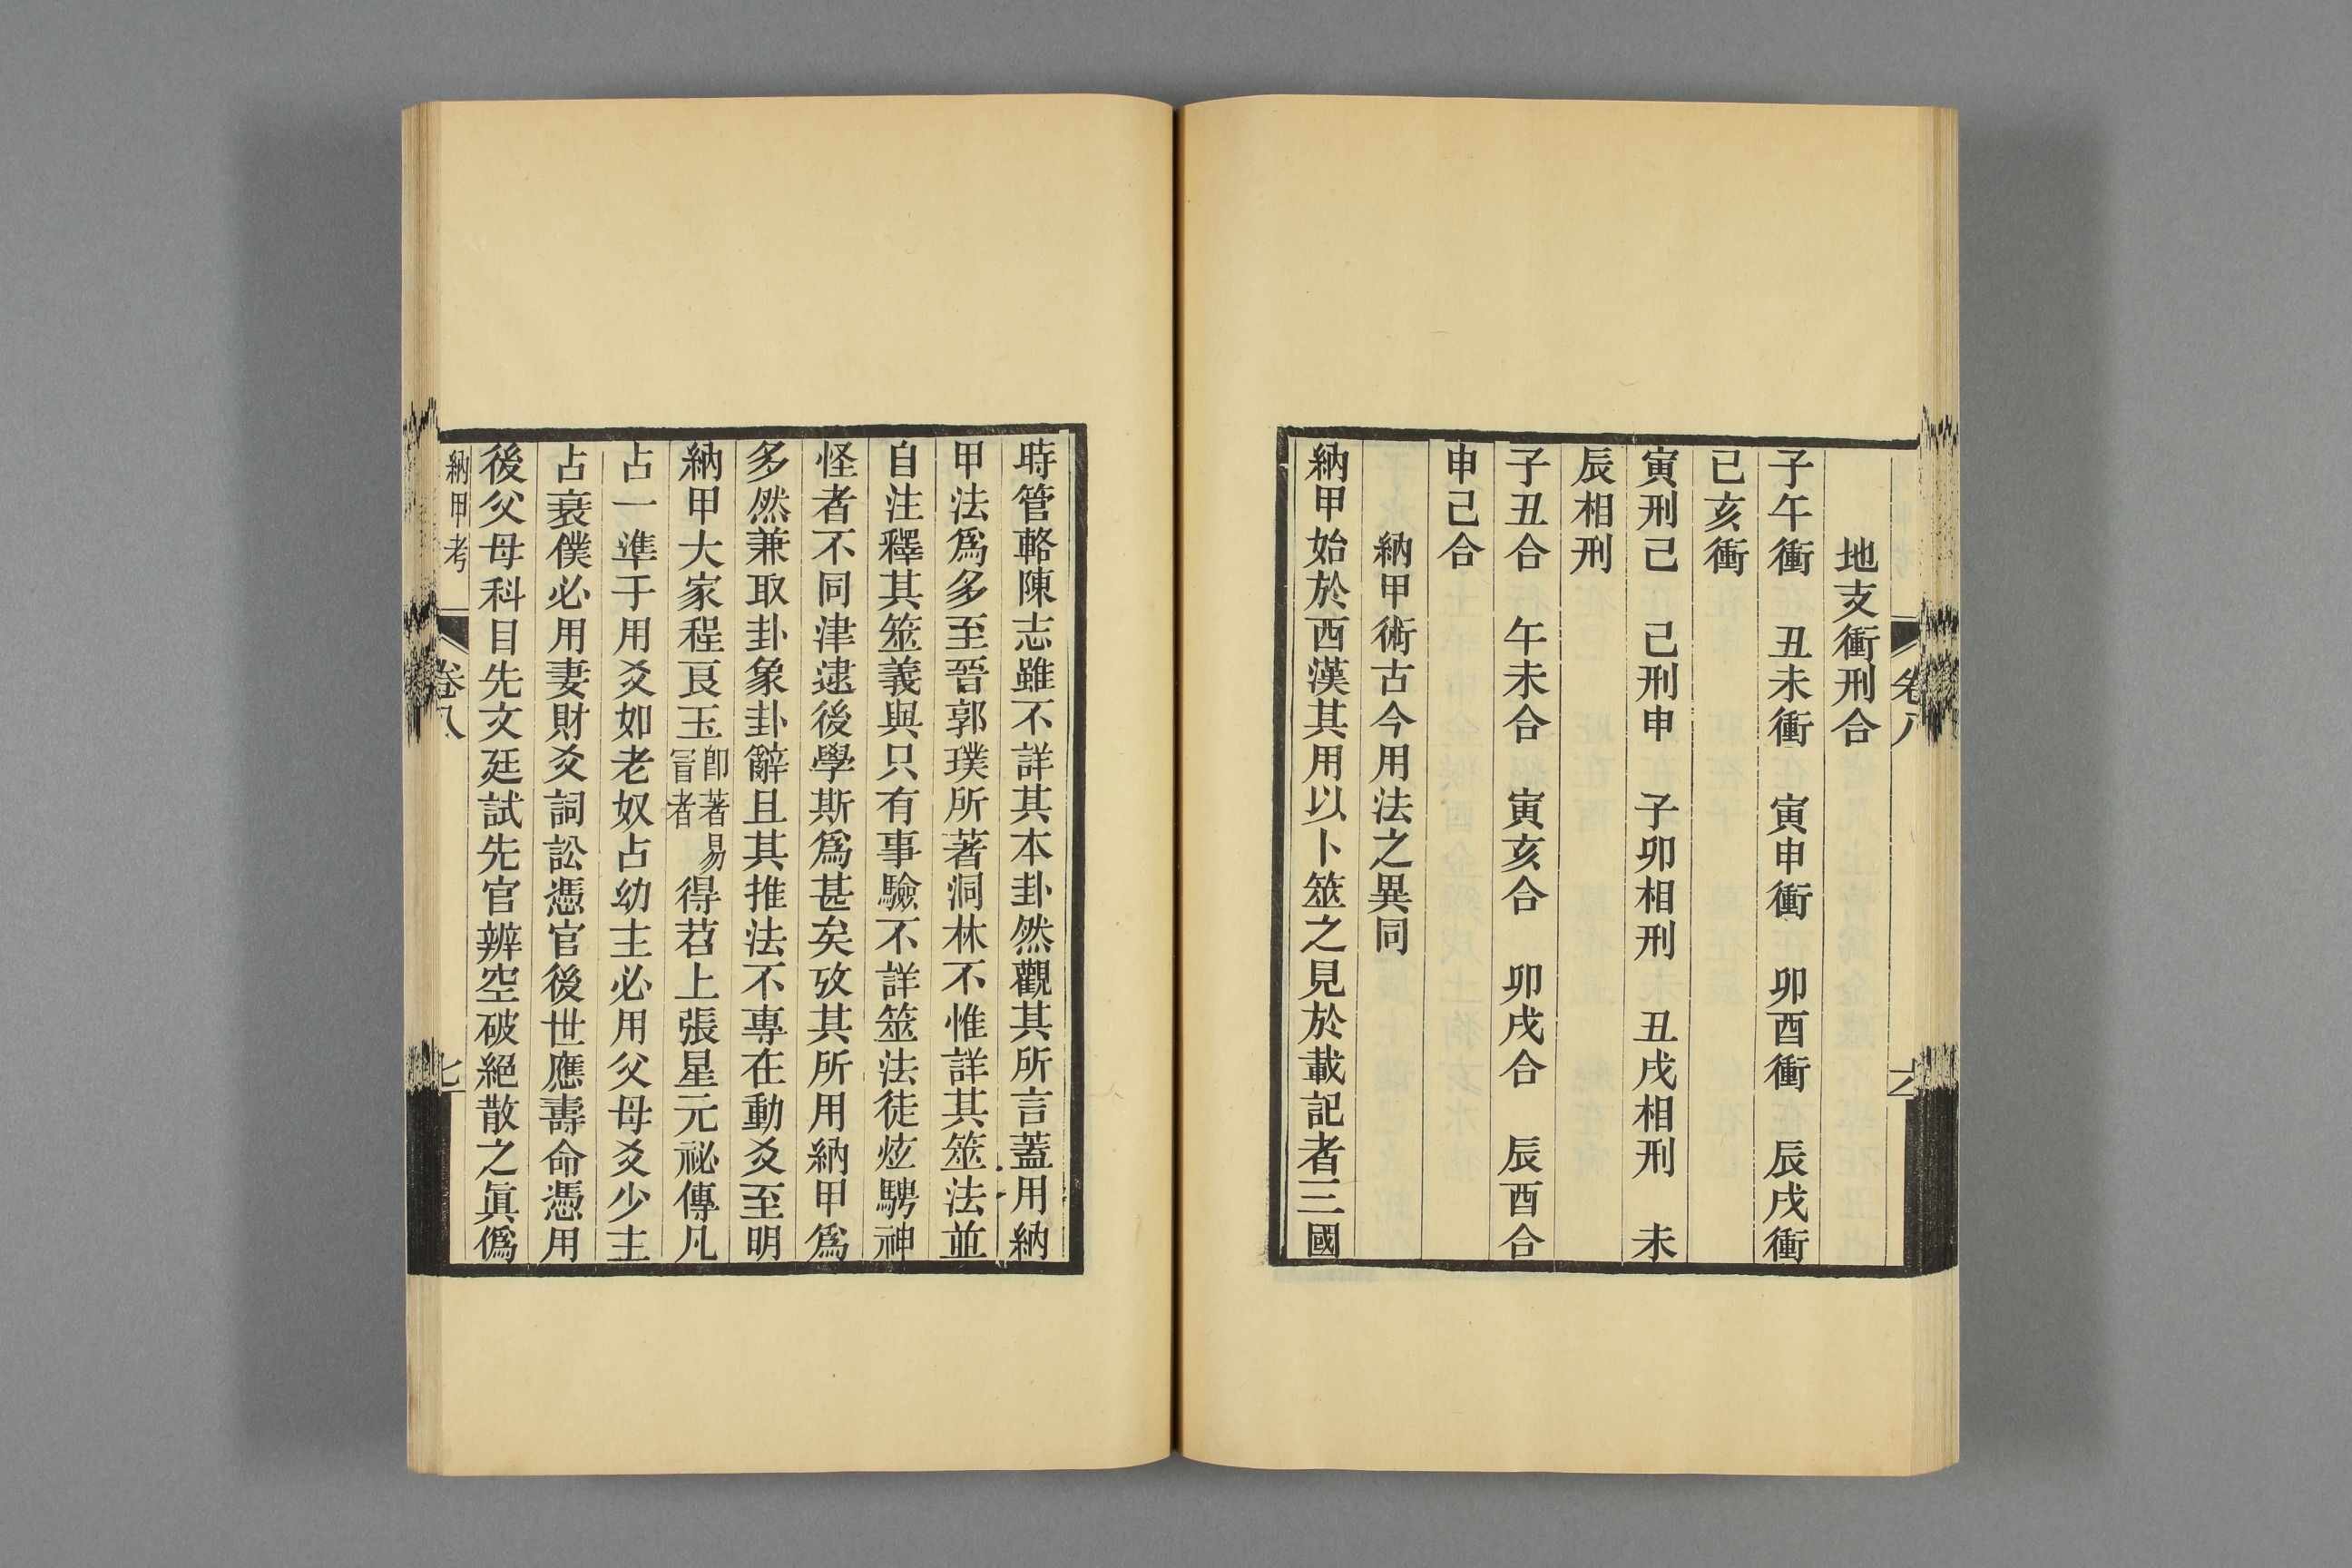 卷八
六
地支衝刑合
子午衝　丑未衝　寅申衝　卯酉衝　辰戌衝
已亥衝
寅刑己　己刑申　子卯相刑　丑戌相刑　未
辰相刑
子丑合　午未合　寅亥合　卯戌合　辰酉合
申己合
納甲術古今用法之異同
納甲始於西漢其用以卜筮之見於載記者三國
時管輅陳志雖不詳其本卦然觀其所言蓋用納
甲法爲多至晉郭璞所著洞林不惟詳其筮法並
自注釋其筮義與只有事驗不詳筮法徒炫騁神
怪者不同津逮後學斯爲甚矣攷其所用納甲爲
多然兼取卦象卦辭且其推法不專在動爻至明
納甲大家程良玉卽著易冒者得苕上張星元祕傳凡
占一準于用爻如老奴占幼主必用父母爻少主
占衰僕必用妻財爻詞訟憑官後世應壽命憑用
後父母科目先文廷試先官辨空破絕散之眞僞
納甲考
卷八
七